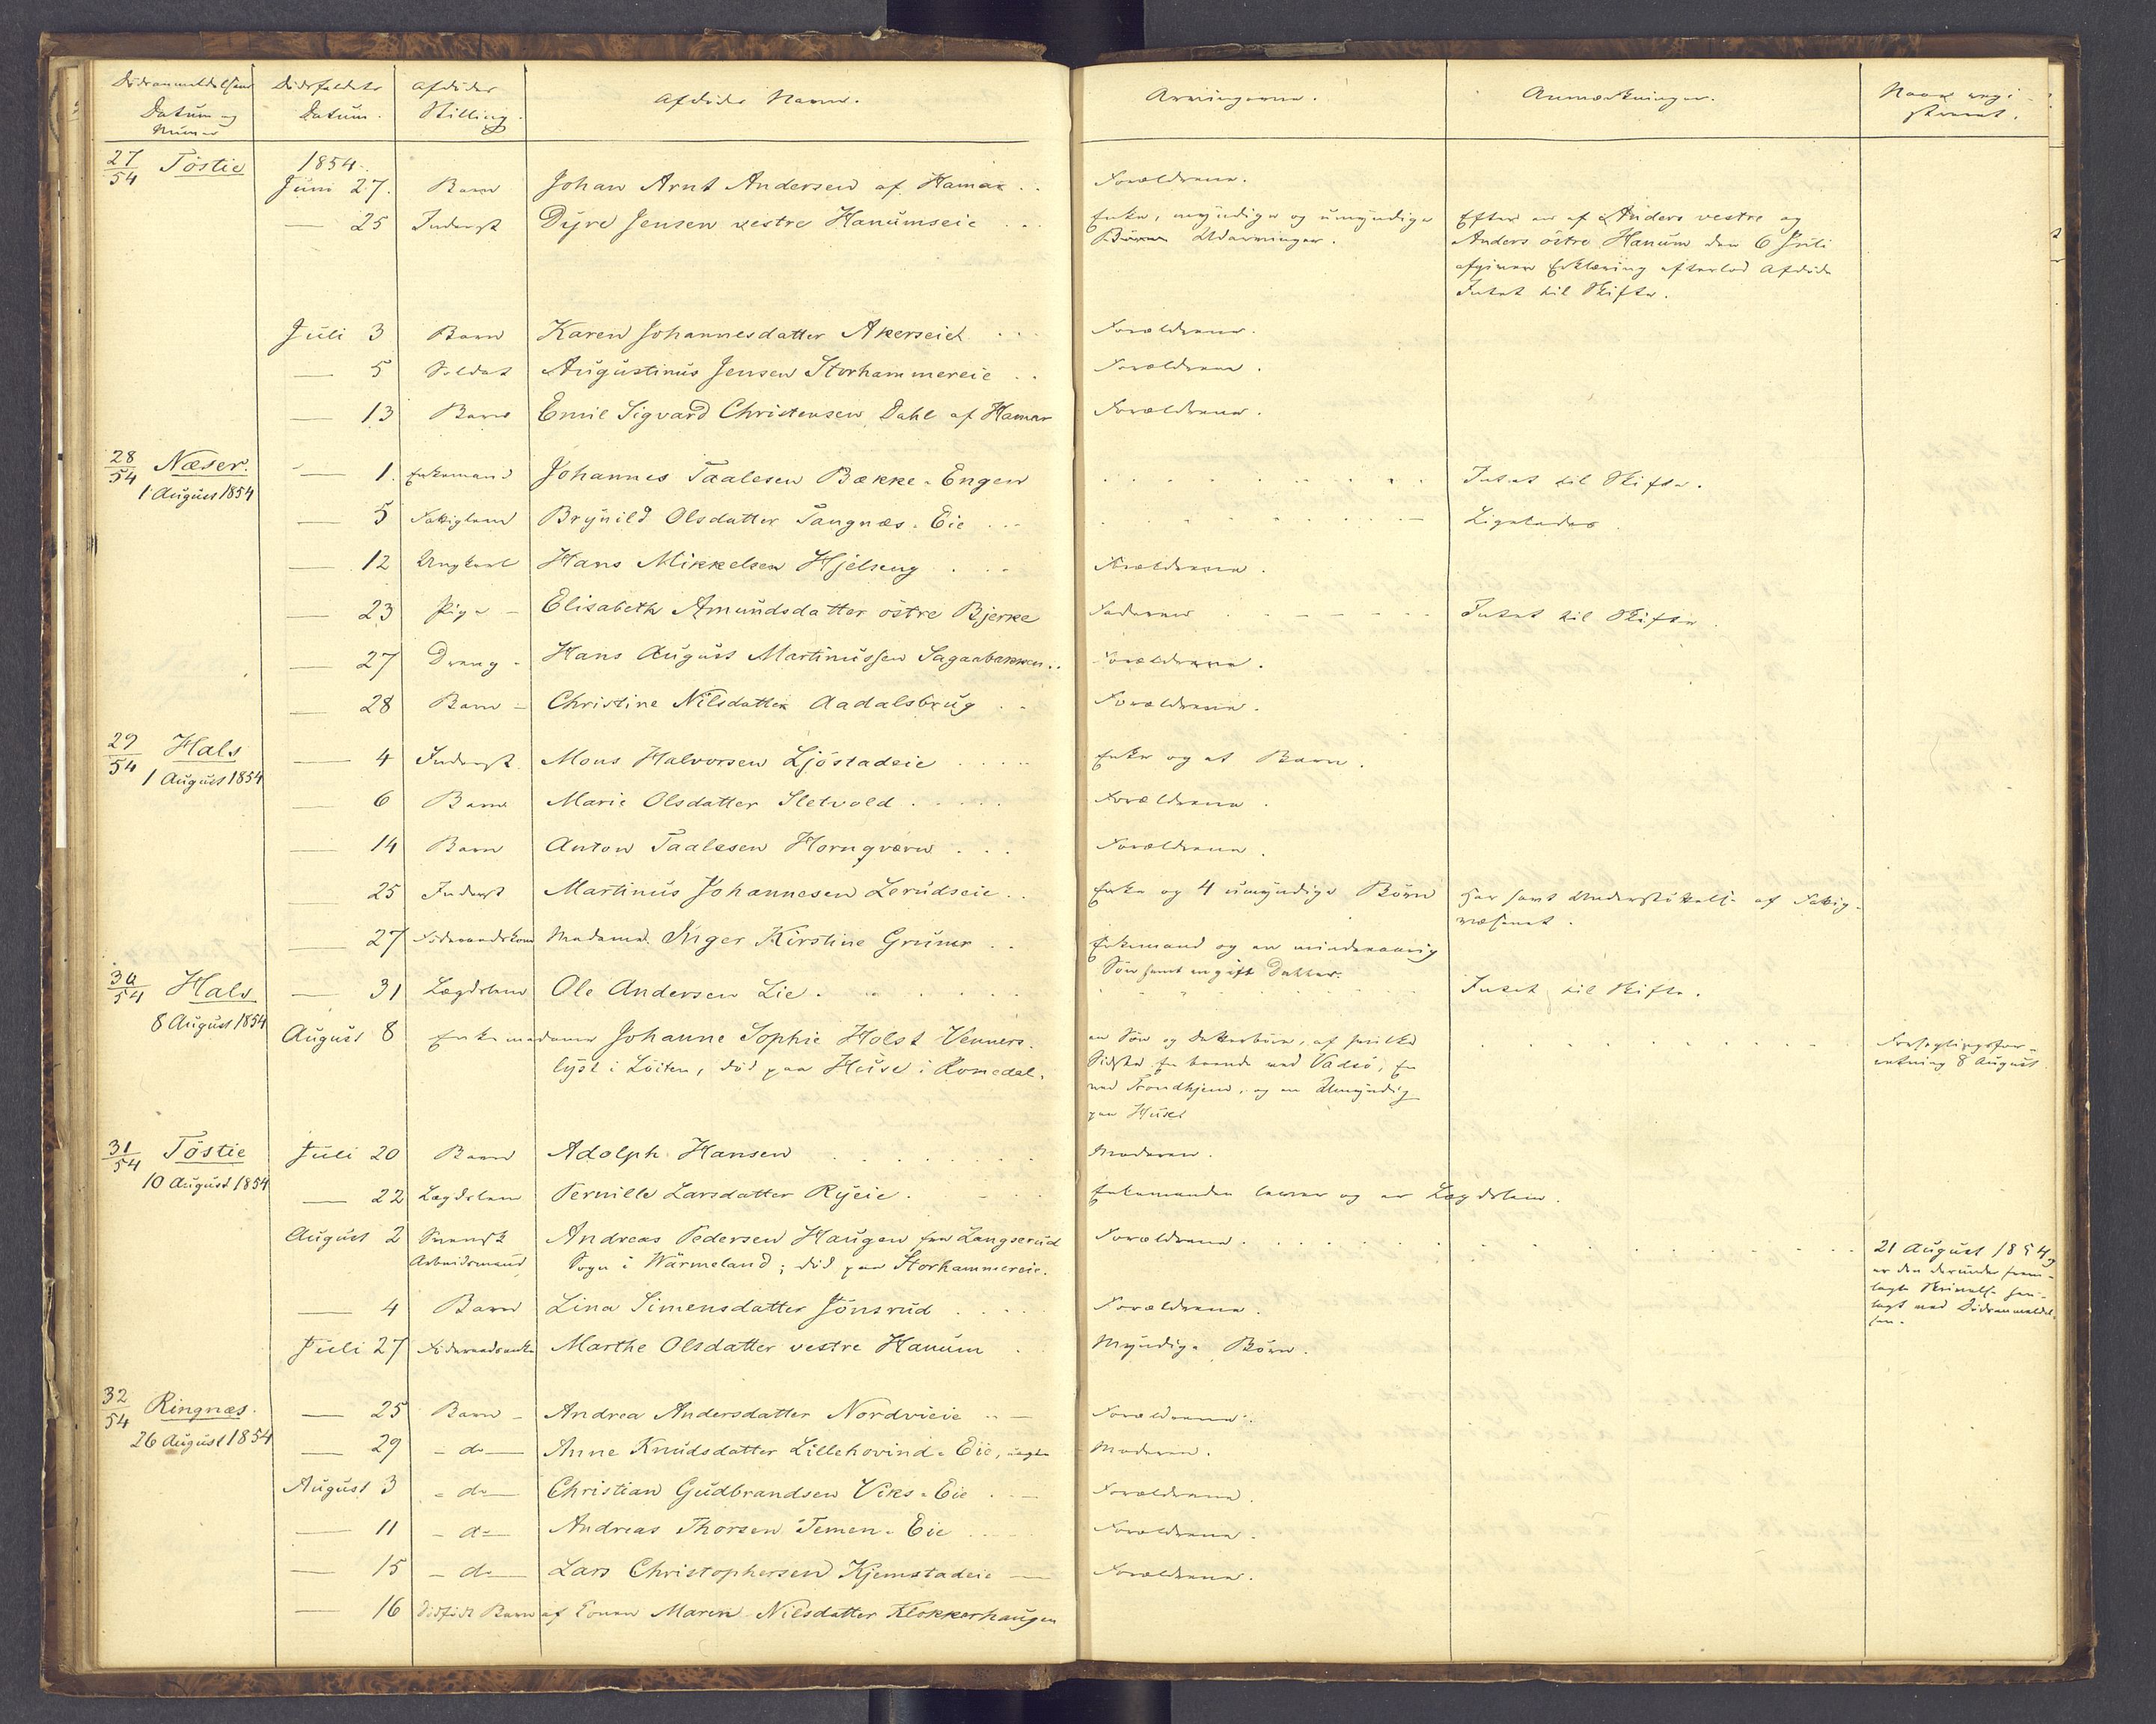 Dödsanmeldelsens Dödsfaldets Afdödes Afdödes Navn. Arvingerne. Anmærkninger. Naar regi-
Datum og Datum. Stilling. streret.
Numer
27/54 Töstie 1854.
Juni 27. Barn Johan Arnt Andersen af Hamar .. Forældrene.
— 25 Inderst Dyre Jensen vestre Hanumseie ... Enke, myndige og umyndige Efter en af Anders vestre og
Udarvinger. Anders östre Hanum den 6 Juli
afgiven Erklæring efterlod Afdöde
Intet til Skifte.
Juli 3 Barn Karen Johannesdatter Akerseiet ... Forældrene.
— 5 Soldat Augustinus Jensen Storhammereie .. Forældrene.
— 13 Barn Emil Sigvard Christensen Dahl af Hamar Forældrene.
28/54 Næser. — 1. Enkemand Johannes Taalesen Bække-Engen Intet til Skifte.
1 August 1854
— 5 Fattiglem Brynild Olsdatter Tangnæs-Eie ... Ligeledes.
— 12 Ungkarl Hans Mikkelsen Hjelseng ... Forældrene.
— 23 Pige — Elisabeth Amundsdatter östre Bjerke Faderen Intet til Skifte.
— 27 Dreng - Hans August Martinussen Sagaabakken .. Forældrene.
— 28 Barn — Christine Nilsdatter Aadalsbrug .. Forældrene.
29/54 Hals — 4 Inderst Mons Halvorsen Ljöstadeie ..... Enke og et Barn.
1 August 1854
— 6 Barn Marie Olsdatter Sletvold ..... Forældrene.
— 14 Barn Anton Taalesen Hornqværn ... Forældrene.
— 25 Inderst Martinus Johannesen Lerudseie .. Enke og 4 umyndige Börn Har faaet Understöttelse af Fattig-
væsenet.
— 27 Föderaadskone Madame Inger Kirstine Grüner .. Enkemand og en mindreaarig
Sön samt en gift Datter.
30/54 Hals — 31 Lægdslem Ole Andersen Lie ....... Intet til Skifte.
8 August 1854
August 8 Enkemadame Johanne Sophie Holst Venners- en Sön og Datterbörn, af hvilke Forseglingsfor-
lyst i Löiten, död paa Huse i Romedal. Sidste En boende ved Vadsö, En retning 8 August
ved Trondhjem, og en Umyndig
paa Huset
31/54 Töstie Juli 20 Barn Adolph Hansen ....... Moderen.
10 August 1854
— 22 Lægdslem Pernille Larsdatter Ryeie ... Enkemanden lever og er Lægdslem.
August 2 Svensk Andreas Pedersen Haugen fra Langserud Forældrene 21 August 1854,
Arbeidsmand Sogn i Wärmeland; död paa Storhammereie. er den derunder frem-
lagte Skrivelse hen-
— 4 Barn Lina Simensdatter Jönsrud .... Forældrene. lagt ved Dödsanmeldel-
sen.
Juli 27 Föderaadsenke Marthe Olsdatter vestre Hanum . Myndige Börn.
32/54 Ringnæs. — 25 Barn — Andrea Andersdatter Nordvieie .. — Forældrene.
26 August 1854
— 29 — do — Anne Knudsdatter Lillehovind-Eie, uægte Moderen.
August 3 — do — Christian Gudbrandsen Viks-Eie . — Forældrene.
— 11 — do — Andreas Thorsen Temen-Eie .... Forældrene.
— 15 — do — Lars Christophersen Kjemstadeie — Forældrene.
— 16 Dödfödt Barn af Konen Maren Nilsdatter Klokkerhaugen